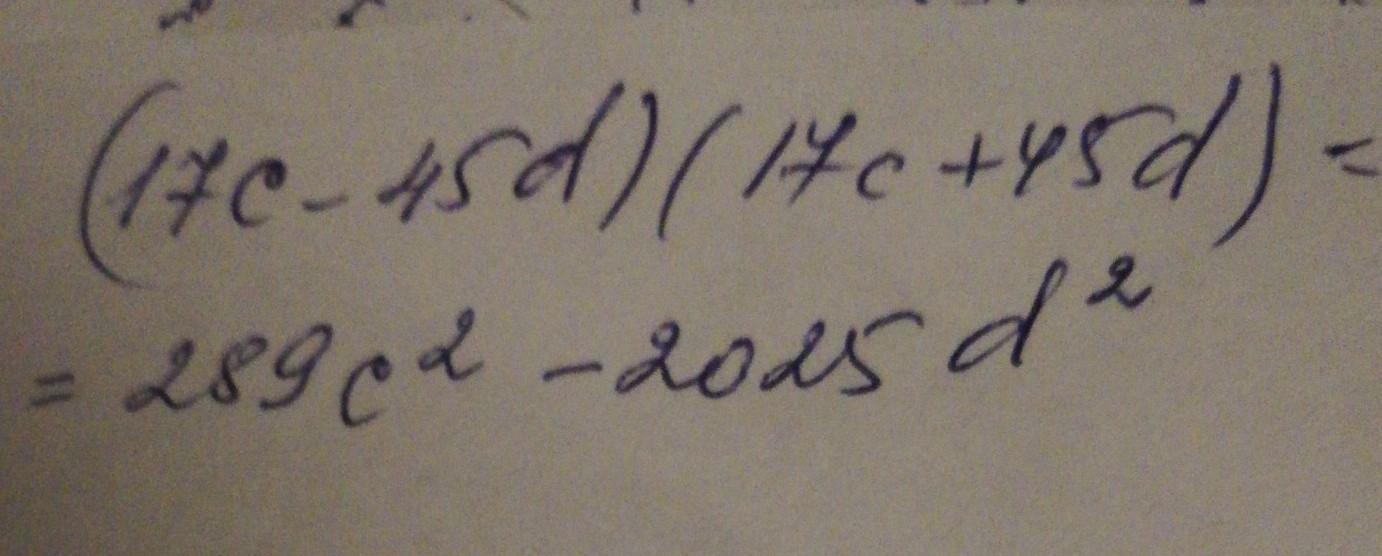 (17c - 45d)(17c + 45d) =
= 289c² - 2025d²